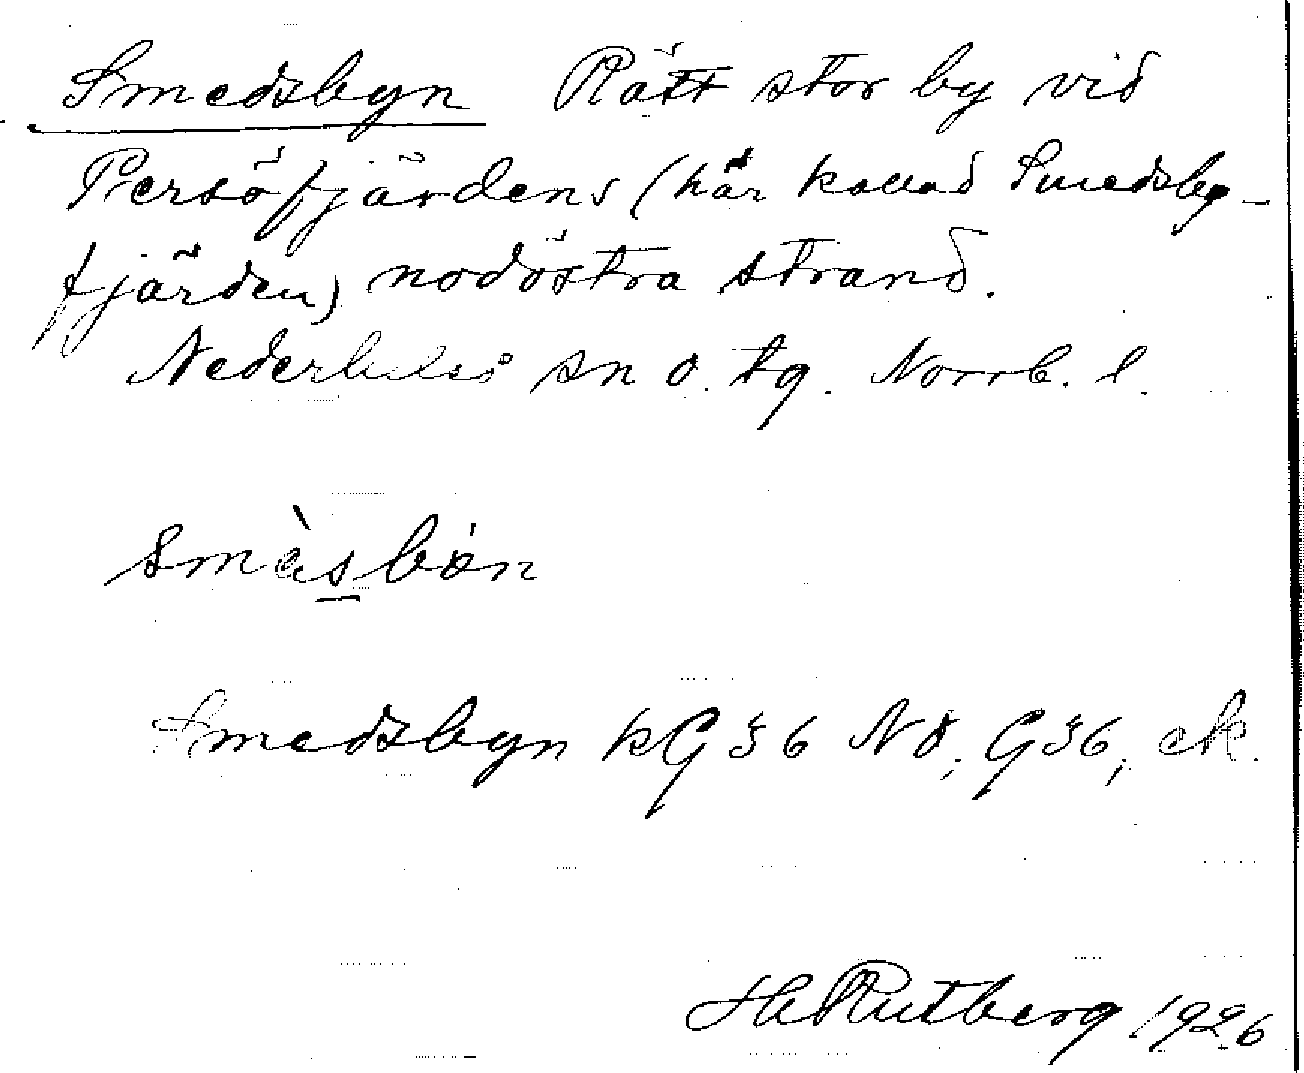 Smedsbyn Rätt stor by vid
Persöfjärdens (här kallad Smedsby-
fjärden) nodöstra strand.
Nederluleå sn o. tg. Norrb. l.
smàsbón
Smedsbyn kG 36 NO; G36; ek.
H Rutberg 1926